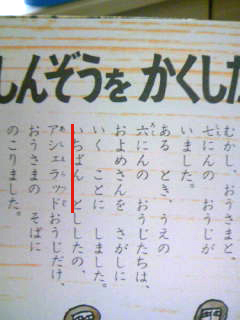 しんぞうを かくした
むかし、おうさまと、
七にんの おうじが
いました。
ある とき、うえの
六にんの おうじたちは、
およめさんを さがしに
いく ことに しました。
いちばん とししたの、
アシェラッドおうじだけ、
おうさまの そばに
のこりました。